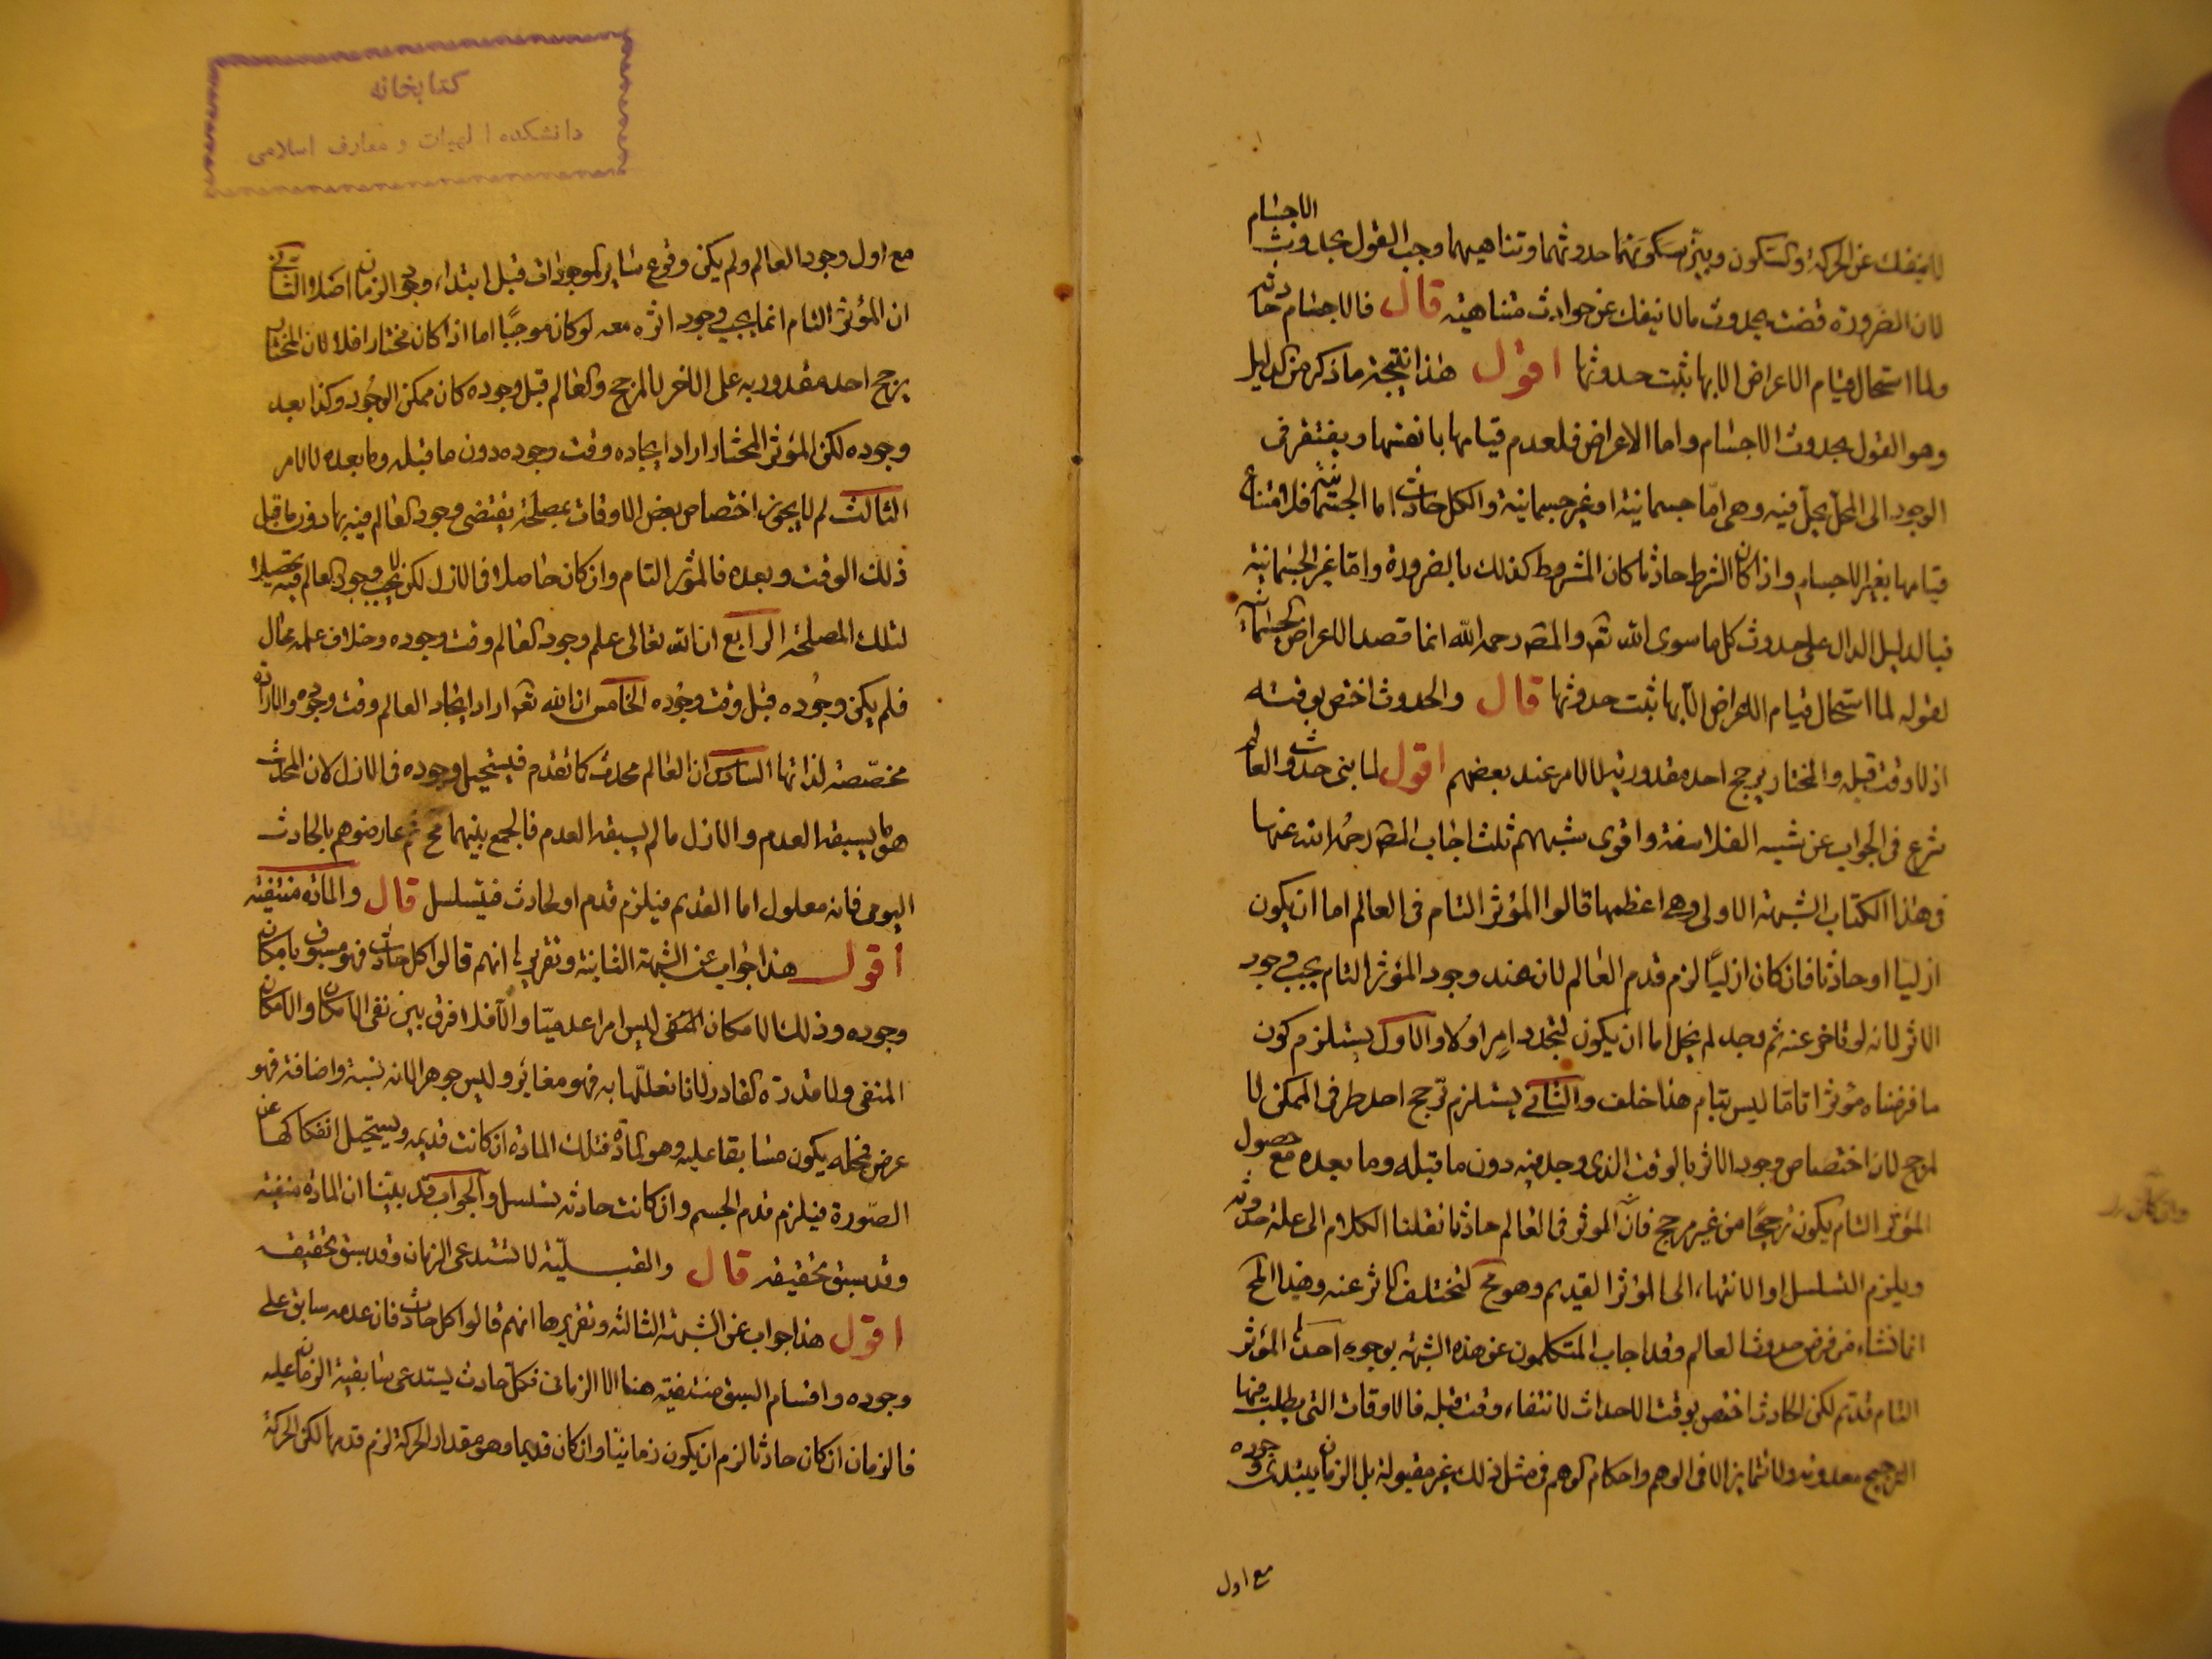 لا ينفك عن الحركة والسكون وبين حدوثهما وتناهيهما وجب القول بحدوث الاجسام
لان الضرورة قضت بحدوث ما لا ينفك عن حوادث متناهية قال فالاجسام حادثة
ولما استحال قيام الاعراض الا بها ثبت حدوثها اقول هذا نتيجة ما ذكر من الدليل
وهو القول بحدوث الاجسام واما الاعراض فلعدم قيامها بانفسها ويفتقر فى
الوجود الى المحل يحل فيه وهى اما جسمانية او غير جسمانية والكل حادث اما الجسمانية فلامتناع
قيامها بغير الاجسام واذا كان الشرط حادثا كان المشروط كذلك بالضرورة واما غير الجسمانية
فبالدليل الدال على حدوث كل ما سوى الله تعـ والمصـ رحمه الله انما قصد الاعراض الجسمانية
لقوله لما استحال قيام الاعراض الا بها ثبت حدوثها قال والحدوث اختص بوقته
اذ لا وقت قبله والمختار يرجح احد مقدوريه لا لامر عند بعضهم اقول لما بنى حدوث العالم
شرع فى الجواب عن شبه الفلاسفة واقوى شبههم ثلث اجاب المصـ رحمه الله عنها
فى هذا الكتاب الشبهة الاولى وهى اعظمها قالوا المؤثر التام فى العالم اما ان يكون
ازليا او حادثا فان كان ازليا لزم قدم العالم لان عند وجود المؤثر التام يجب وجود
الاثر لانه لو تاخر عنه ثم وجد لم يخل اما ان يكون لتجدد امر اولا والاول يستلزم كون
ما فرضناه مؤثرا تاما ليس بتام هذا خلف والثانى يستلزم ترجح احد طرفى الممكن لا
لمرجح لان اختصاص وجود الاثر بالوقت الذى وجد فيه دون ما قبله وما بعده مع حصول
المؤثر التام يكون ترجيحا من غير مرجح فان المؤثر فى العالم حادثا نقلنا الكلام الى علة حدوثه
ويلزم التسلسل او الانتهاء الى المؤثر القديم وهو مح لتختلف الاثر عنه وهذا المح
انما نشاء من فرض حدوث العالم وقد اجاب المتكلمون عن هذه الشبهة بوجوه احدها المؤثر
التام قديم لكن الحادث اختص بوقت الاحداث لانتفاء وقت قبله فالاوقات التى يطلب فيها
الترجيح معدومة ولا تمايز الا فى الوهم واحكام الوهم فى مثل ذلك غير مقبولة بل الزمان يبتدئ وجوده
مع اول
كتابخانه
دانشكده الهيات و معارف اسلامى
مع اول وجود العالم ولم يكن وقوع ساير الموجودات قبل ابتداء وجود الزمان اصلا الثانى
ان المؤثر التام انما يجب وجود اثره معه لو كان موجبا اما اذا كان مختارا فلا لان المختار
يرجح احد مقدوريه على الاخر لا لمرجح والعالم قبل وجوده كان ممكن الوجود وكذا بعد
وجوده لكن المؤثر المختار اراد ايجاده وقت وجوده دون ما قبله وما بعده لا لامر
الثالث لم لا يجوز اختصاص بعض الاوقات بمصلحة يقتضى وجود العالم فيه بها دون ما قبل
ذلك الوقت وبعده فالمؤثر التام وان كان حاصلا فى الازل لكن لا يجب وجود العالم فيه تحصيلا
لتلك المصلحة الرابع ان الله تعالى علم وجود العالم وقت وجوده وخلاف علمه محال
فلم يكن وجوده قبل وقت وجوده الخامس ان الله تعـ اراد ايجاد العالم وقت وجوده والارادة
مخصصة لذاتها السادس ان العالم محدث كما تقدم فيستحيل وجوده فى الازل لان المحدث
هو ما يسبقه العدم والازل ما لم يسبقه العدم فالجمع بينهما مح ثم عارضوهم بالحادث
اليومى فانه معلول اما القديم فيلزم قدمه او لحادث فيتسلسل قال والمادة منتفية
اقول هذا جواب عن الشبهة الثانية وتقريرها انهم قالوا كل حادث فهو مسبوق بامكان
وجوده وذلك الامكان المنفى ليس امرا عدميا والا فلا فرق بين نفى الامكان والامكان
المنفى ولا قدرة القادر لانا نعللها به فهو مغاير وليس جوهرا لانه نسبة واضافة فهو
عرض فمحله يكون سابقا عليه وهو المادة فتلك المادة ان كانت قديمه ويستحيل انفكاكها عن
الصورة فيلزم قدم الجسم وان كانت حادثه تسلسل والجواب قد بينا ان المادة منفية
وقد سبق تحقيقه قال والقبلية لا تستدعى الزمان وقد سبق تحقيقه
اقول هذا جواب عن الشبهة الثالثه وتقريرها انهم قالوا كل حادث فان عدمه سابق على
وجوده واقسام السبق منتفية هنا الا الزمانى فكل حادث يستدعى سابقية الزمان عليه
فالزمان ان كان حادثا لزم ان يكون زمانيا وان كان قديما وهو مقدار الحركة لزم قدمها لكن الحركة